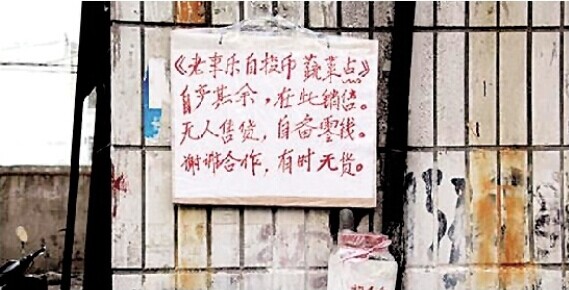 《老来乐自投币蔬菜点》
自产其余，在此销售。
无人售货，自备零钱。
谢谢合作，有时无货。